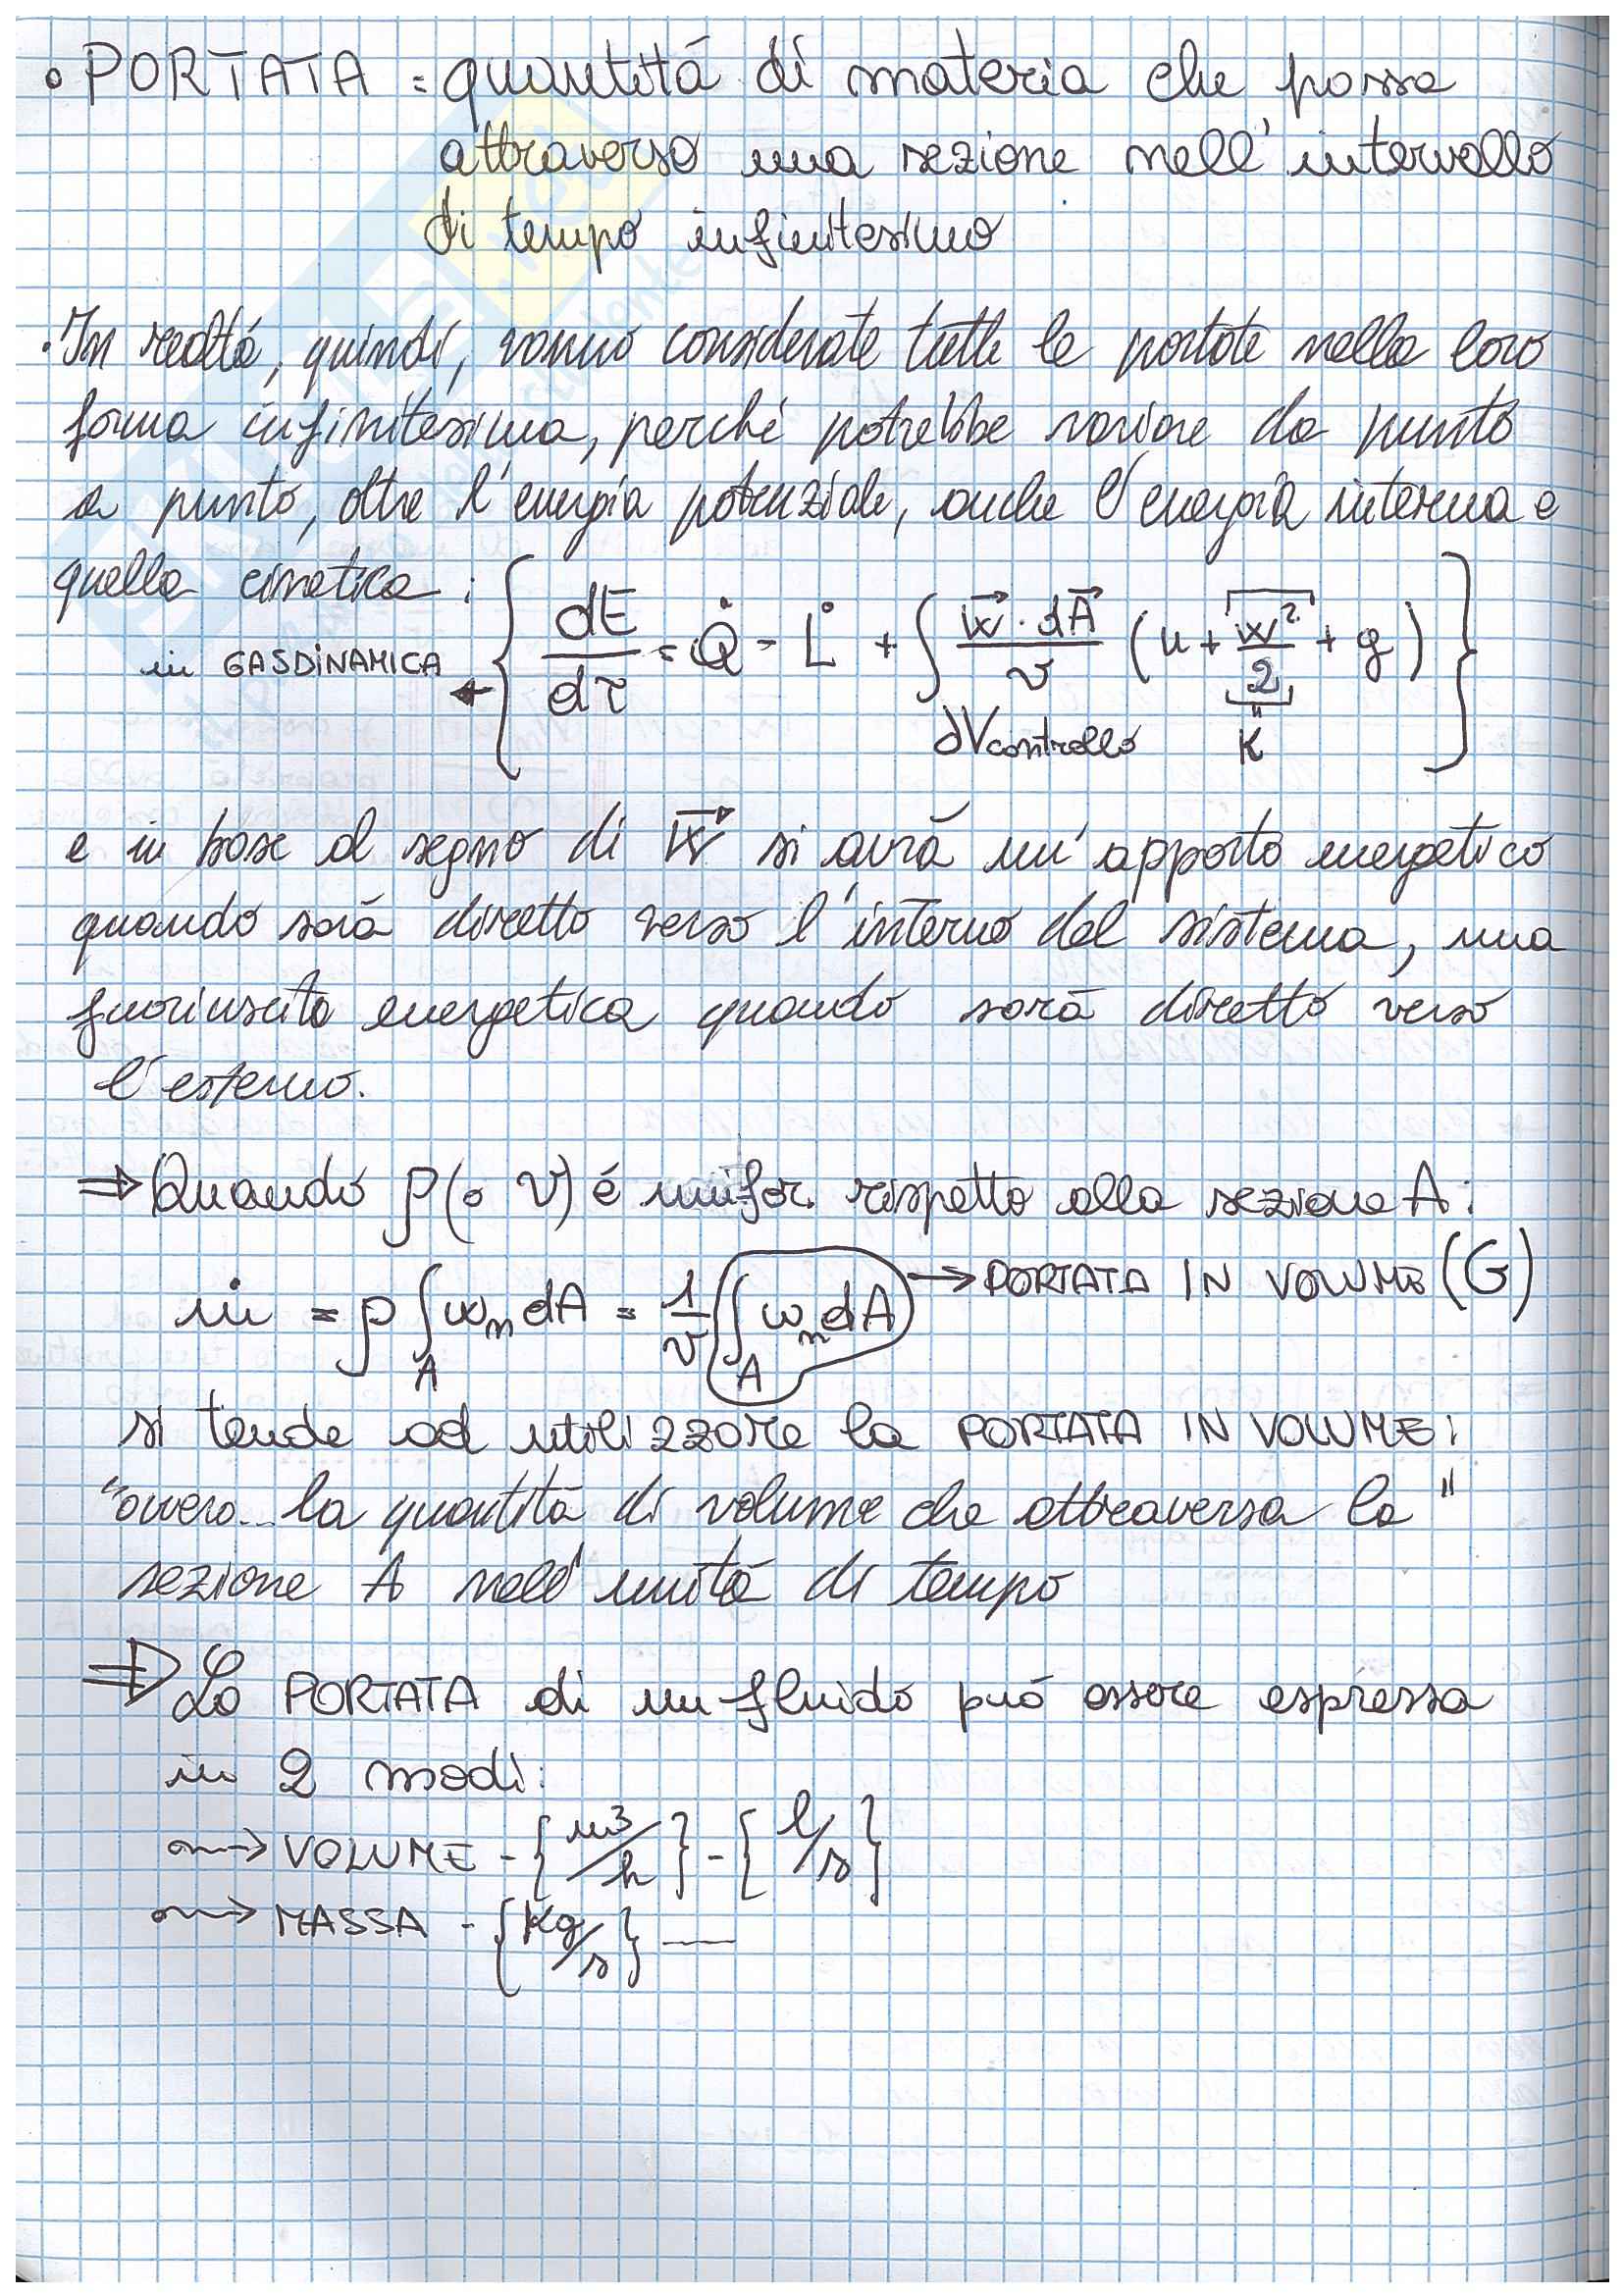 • PORTATA = quantitá di materia che passa
attraverso una sezione nell'intervallo
di tempo infinitesimo
• In realtá, quindi, vanno considerate tutte le portate nella loro
forma infinitesima, perché potrebbe variare da punto
a punto, oltre l'energia potenziale, anche l'energia interna e
quella cinetica :
in GASDINAMICA ← { dE/dτ = Q̇ - L̇ + ∫ w⃗ · dA⃗ / v (u + w²/2 + g) }
∂Vcontrollo " K
e in base al segno di w⃗ si avrá un'apporto energetico
quando sará diretto verso l'interno del sistema, una
fuoriuscita energetica quando sará diretto verso
l'esterno.
⇒ Quando ρ (o v) é unifor. rispetto alla sezione A:
ṁ = ρ ∫A wn dA = 1/v ∫A wn dA → PORTATA IN VOLUME (G)
si tende ad utilizzare la PORTATA IN VOLUME:
"ovvero... la quantitá di volume che attraversa la"
sezione A nell'unitá di tempo
⇒ La PORTATA di un fluido puó essere espressa
in 2 modi:
→ VOLUME - {m³/h} - {l/s}
→ MASSA - {Kg/s} —